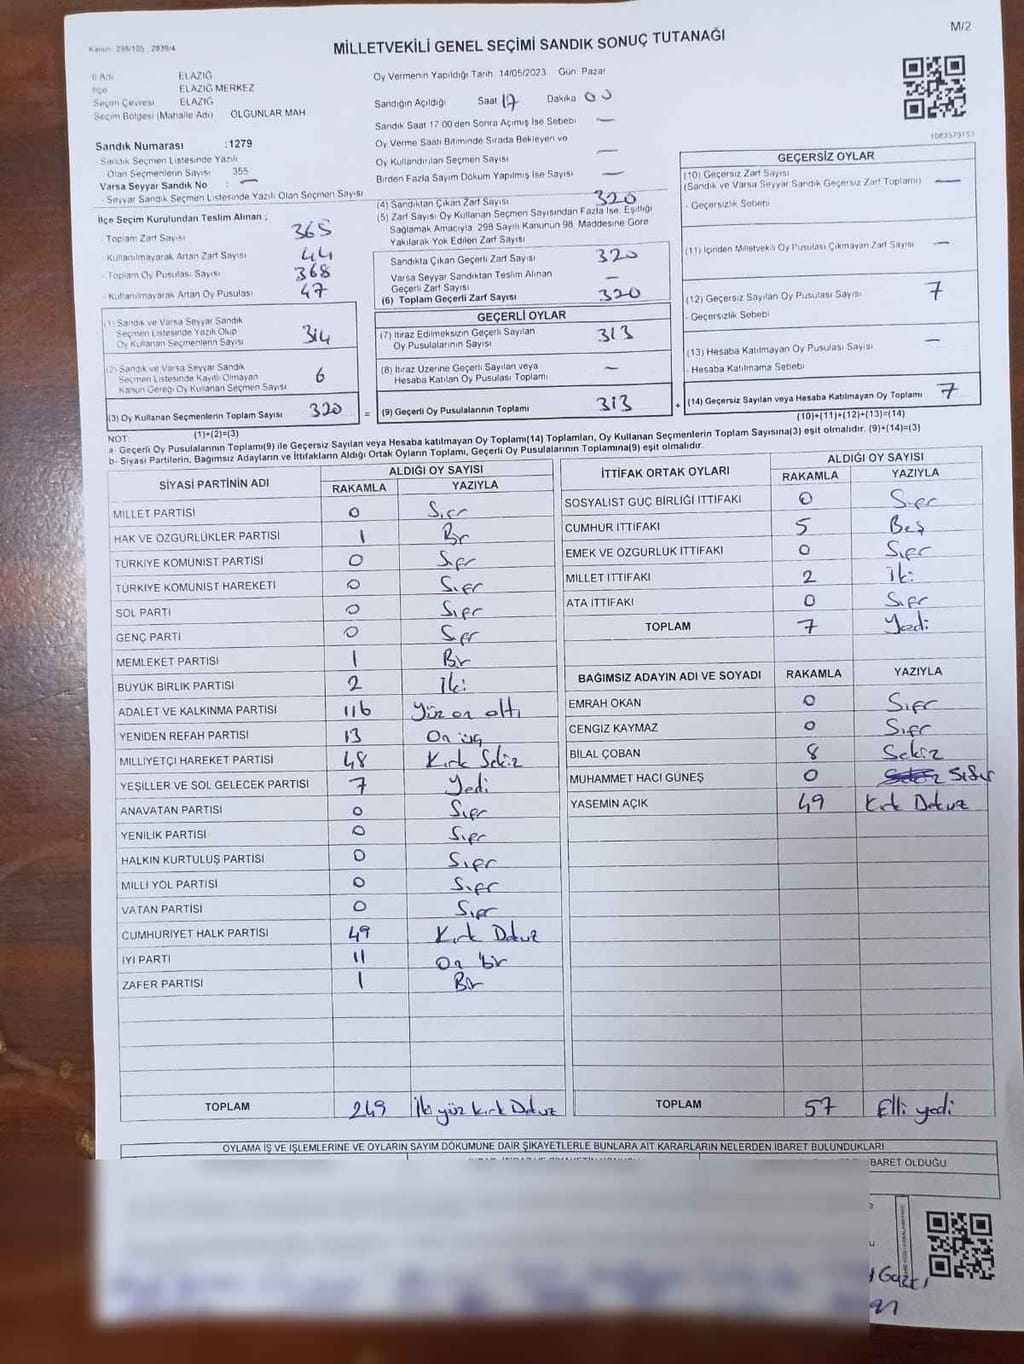 Kanun: 298/105, 2839/4
M/2
MİLLETVEKİLİ GENEL SEÇİMİ SANDIK SONUÇ TUTANAĞI
İl Adı ELAZIĞ
İlçe ELAZIĞ MERKEZ
Seçim Çevresi ELAZIĞ
Seçim Bölgesi (Mahalle Adı) OLGUNLAR MAH
Sandık Numarası :1279
Sandık Seçmen Listesinde Yazılı
Olan Seçmenlerin Sayısı 355
Varsa Seyyar Sandık No : —
- Seyyar Sandık Seçmen Listesinde Yazılı Olan Seçmen Sayısı
İlçe Seçim Kurulundan Teslim Alınan ;
- Toplam Zarf Sayısı 365
- Kullanılmayarak Artan Zarf Sayısı 44
- Toplam Oy Pusulası Sayısı 368
- Kullanılmayarak Artan Oy Pusulası 47
(1) Sandık ve Varsa Seyyar Sandık
Seçmen Listesinde Yazılı Olup
Oy Kullanan Seçmenlerin Sayısı 314
(2) Sandık ve Varsa Seyyar Sandık
Seçmen Listesinde Kayıtlı Olmayan
Kanun Gereği Oy Kullanan Seçmen Sayısı 6
(3) Oy Kullanan Seçmenlerin Toplam Sayısı 320
(1)+(2)=(3)
Oy Vermenin Yapıldığı Tarih 14/05/2023 Gün Pazar
Sandığın Açıldığı Saat 17 Dakika 00
Sandık Saat 17 00'den Sonra Açılmış İse Sebebi —
Oy Verme Saati Bitiminde Sırada Bekleyen ve
Oy Kullandırılan Seçmen Sayısı —
Birden Fazla Sayım Döküm Yapılmış İse Sayısı —
(4) Sandıktan Çıkan Zarf Sayısı 320
(5) Zarf Sayısı Oy Kullanan Seçmen Sayısından Fazla İse, Eşitliği
Sağlamak Amacıyla, 298 Sayılı Kanunun 98. Maddesine Göre
Yakılarak Yok Edilen Zarf Sayısı
Sandıkta Çıkan Geçerli Zarf Sayısı 320
Varsa Seyyar Sandıktan Teslim Alınan
Geçerli Zarf Sayısı —
(6) Toplam Geçerli Zarf Sayısı 320
GEÇERLİ OYLAR
(7) İtiraz Edilmeksizin Geçerli Sayılan
Oy Pusulalarının Sayısı 313
(8) İtiraz Üzerine Geçerli Sayılan veya
Hesaba Katılan Oy Pusulası Toplamı —
= (9) Geçerli Oy Pusulalarının Toplamı 313 +
GEÇERSİZ OYLAR
(10) Geçersiz Zarf Sayısı
(Sandık ve Varsa Seyyar Sandık Geçersiz Zarf Toplamı) —
- Geçersizlik Sebebi
(11) İçinden Milletvekili Oy Pusulası Çıkmayan Zarf Sayısı —
(12) Geçersiz Sayılan Oy Pusulası Sayısı 7
- Geçersizlik Sebebi
(13) Hesaba Katılmayan Oy Pusulası Sayısı —
- Hesaba Katılmama Sebebi
(14) Geçersiz Sayılan veya Hesaba Katılmayan Oy Toplamı 7
(10)+(11)+(12)+(13)=(14)
NOT:
a- Geçerli Oy Pusulalarının Toplamı(9) ile Geçersiz Sayılan veya Hesaba katılmayan Oy Toplamı(14) Toplamları, Oy Kullanan Seçmenlerin Toplam Sayısına(3) eşit olmalıdır. (9)+(14)=(3)
b- Siyasi Partilerin, Bağımsız Adayların ve İttifakların Aldığı Ortak Oyların Toplamı, Geçerli Oy Pusulalarının Toplamına(9) eşit olmalıdır.
SİYASİ PARTİNİN ADI ALDIĞI OY SAYISI
RAKAMLA YAZIYLA
MİLLET PARTİSİ 0 Sıfır
HAK VE ÖZGÜRLÜKLER PARTİSİ 1 Bir
TÜRKİYE KOMÜNİST PARTİSİ 0 Sıfır
TÜRKİYE KOMÜNİST HAREKETİ 0 Sıfır
SOL PARTİ 0 Sıfır
GENÇ PARTİ 0 Sıfır
MEMLEKET PARTİSİ 1 Bir
BÜYÜK BİRLİK PARTİSİ 2 İki
ADALET VE KALKINMA PARTİSİ 116 Yüz on altı
YENİDEN REFAH PARTİSİ 13 On üç
MİLLİYETÇİ HAREKET PARTİSİ 48 Kırk Sekiz
YEŞİLLER VE SOL GELECEK PARTİSİ 7 Yedi
ANAVATAN PARTİSİ 0 Sıfır
YENİLİK PARTİSİ 0 Sıfır
HALKIN KURTULUŞ PARTİSİ 0 Sıfır
MİLLİ YOL PARTİSİ 0 Sıfır
VATAN PARTİSİ 0 Sıfır
CUMHURİYET HALK PARTİSİ 49 Kırk Dokuz
İYİ PARTİ 11 On bir
ZAFER PARTİSİ 1 Bir
TOPLAM 249 İki yüz kırk Dokuz
İTTİFAK ORTAK OYLARI ALDIĞI OY SAYISI
RAKAMLA YAZIYLA
SOSYALİST GÜÇ BİRLİĞİ İTTİFAKI 0 Sıfır
CUMHUR İTTİFAKI 5 Beş
EMEK VE ÖZGÜRLÜK İTTİFAKI 0 Sıfır
MİLLET İTTİFAKI 2 İki
ATA İTTİFAKI 0 Sıfır
TOPLAM 7 Yedi
BAĞIMSIZ ADAYIN ADI VE SOYADI RAKAMLA YAZIYLA
EMRAH OKAN 0 Sıfır
CENGİZ KAYMAZ 0 Sıfır
BİLAL ÇOBAN 8 Sekiz
MUHAMMET HACI GÜNEŞ 0 Sıfır
YASEMİN AÇIK 49 Kırk Dokuz
TOPLAM 57 Elli yedi
OYLAMA İŞ VE İŞLEMLERİNE VE OYLARIN SAYIM DÖKÜMÜNE DAİR ŞİKAYETLERLE BUNLARA AİT KARARLARIN NELERDEN İBARET BULUNDUKLARI
BARET OLDUĞU